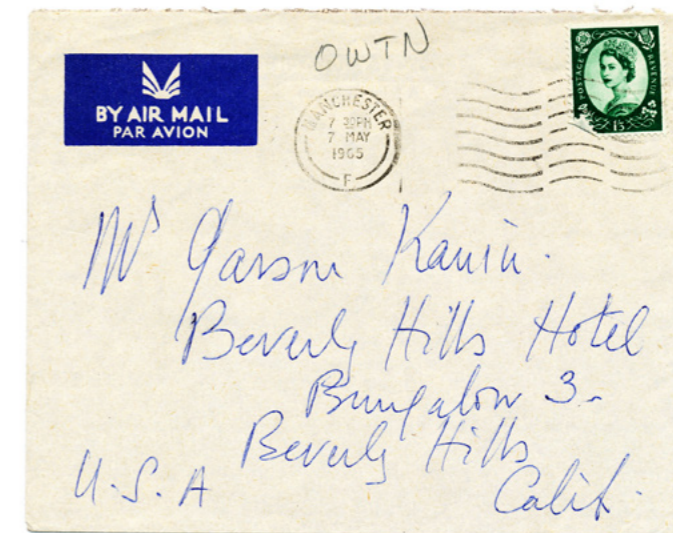 OWTN
BY AIR MAIL
PAR AVION
MANCHESTER
7 30PM
7 MAY
1965
F
POSTAGE
REVENUE
1/3
Mrs Garson Kanin.
Beverly Hills Hotel
Bungalow 3-
Beverly Hills
U.S.A Calif.